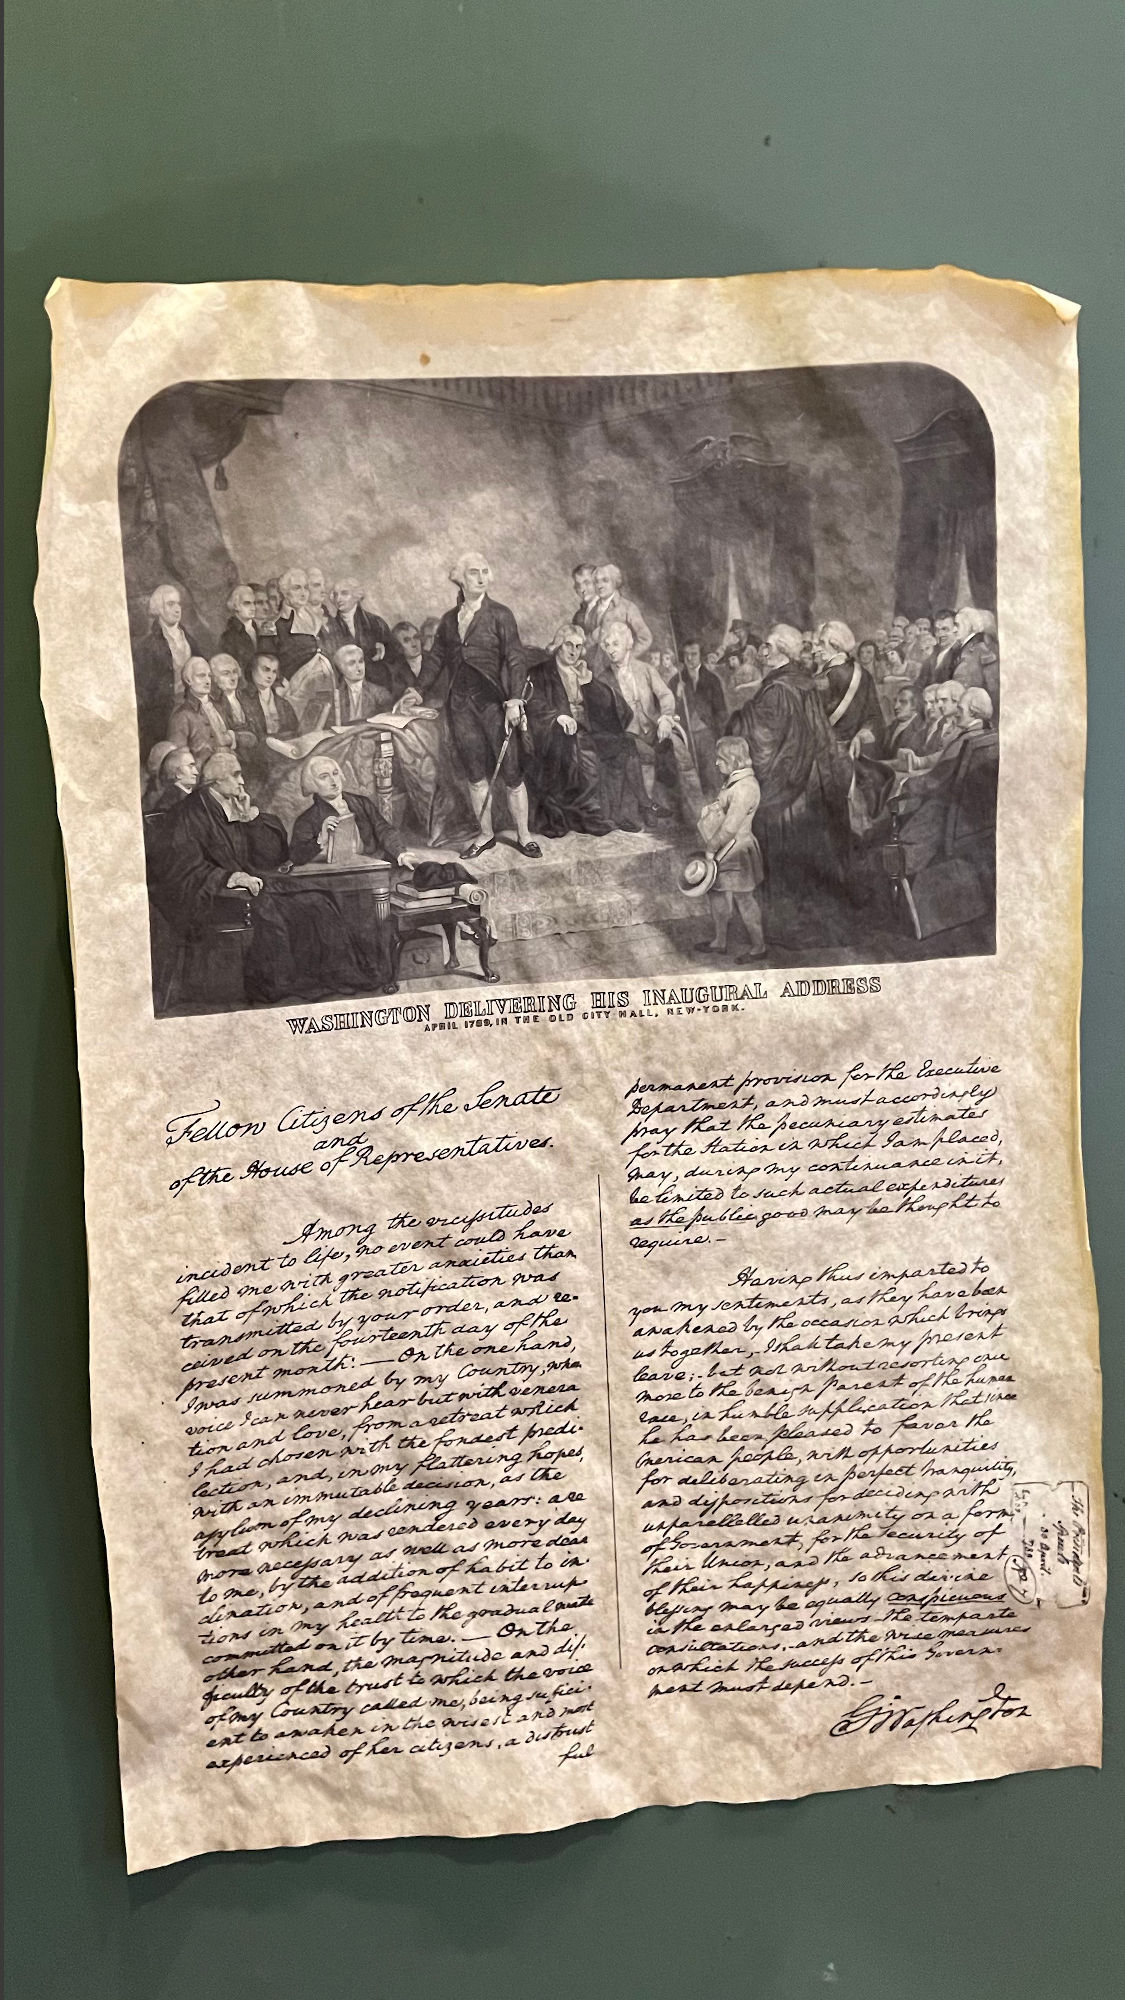 WASHINGTON DELIVERING HIS INAUGURAL ADDRESS
APRIL 1789, IN THE OLD CITY HALL, NEW-YORK.
Fellow Citizens of the Senate
and
of the House of Representatives.
Among the vicissitudes
incident to life, no event could have
filled me with greater anxieties than
that of which the notification was
transmitted by your order, and re-
ceived on the fourteenth day of the
present month: — On the one hand,
I was summoned by my Country, whose
voice I can never hear but with venera
tion and love, from a retreat which
I had chosen with the fondest predi-
lection, and, in my flattering hopes,
with an immutable decision, as the
asylum of my declining years: a re
treat which was rendered every day
more necessary as well as more dear
to me, by the addition of habit to in-
clination, and of frequent interrup-
tions in my health to the gradual waste
committed on it by time. — On the
other hand, the magnitude and dif-
ficulty of the trust to which the voice
of my Country called me, being suffici-
ent to awaken in the wisest and most
experienced of her citizens, a distrust
ful
permanent provision for the Executive
Department, and must accordingly
pray that the pecuniary estimates
for the Station in which I am placed,
may, during my continuance in it,
be limited to such actual expenditures
as the public good may be thought to
require. —
Having thus imparted to
you my sentiments, as they have been
awakened by the occasion which brings
us together, I shall take my present
leave; - but not without resorting once
more to the benign Parent of the human
race, in humble supplication that since
he has been pleased to favor the
merican people, with opportunities
for deliberating in perfect tranquility,
and dispositions for deciding with
unparellelled unanimity on a form
of Government, for the security of
their Union, and the advancement
of their happiness, so this divine
blessing may be equally conspicuous
in the enlarged views - the temperate
consultations, - and the wise measures
on which the success of this Govern-
ment must depend. —
G Washington
The President's
Speech
30 April